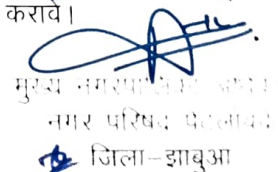 करावे।
मुख्य नगरपालिका
नगर परिषद पेटलावद
जिला-झाबुआ